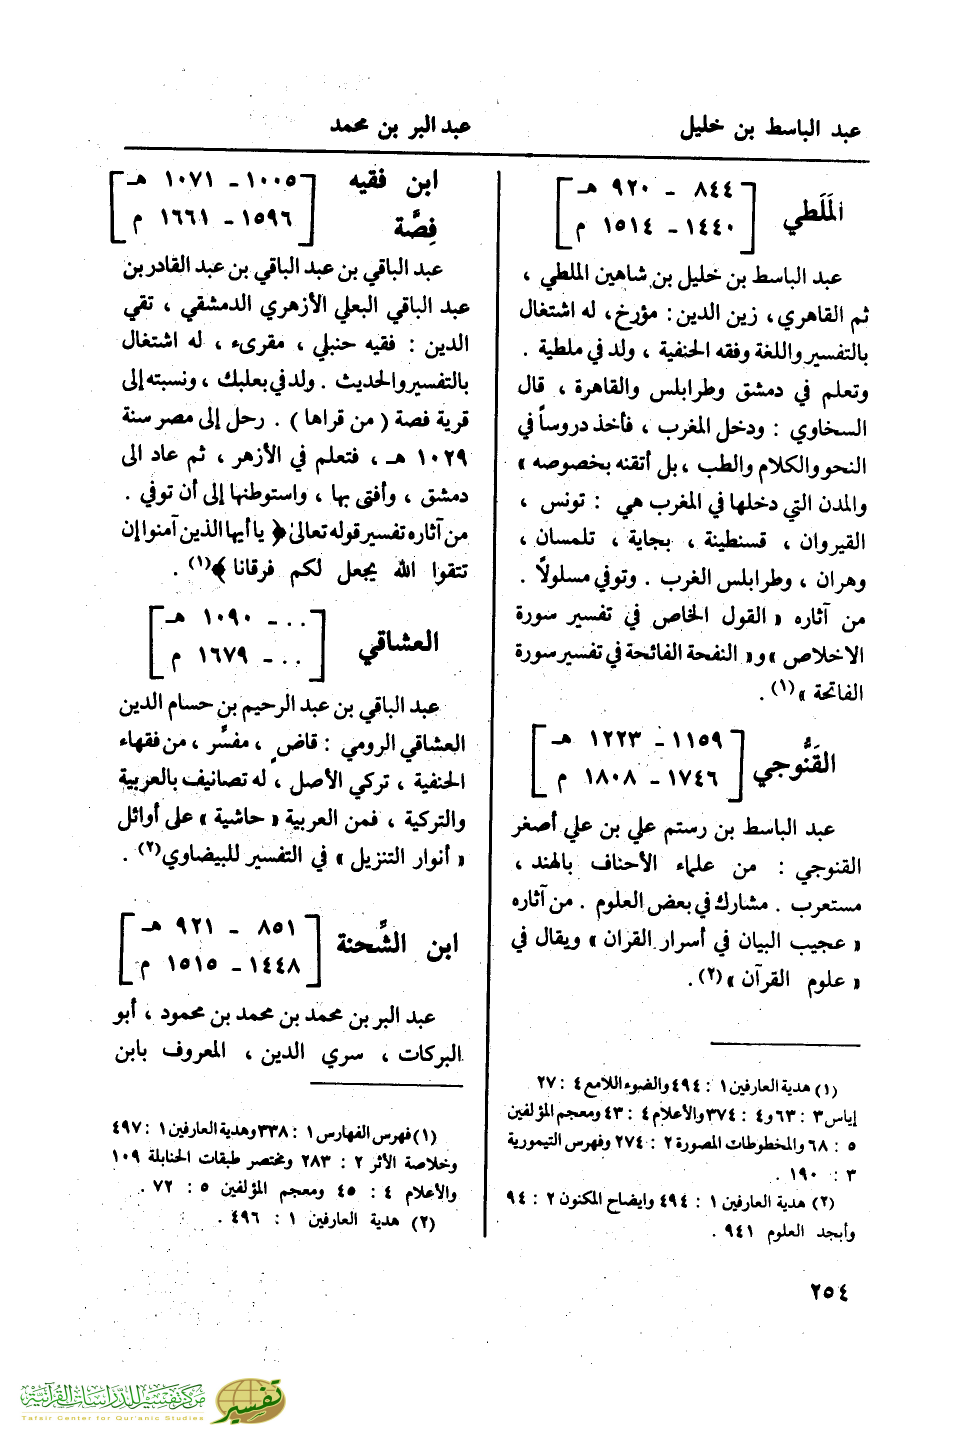 عبد الباسط بن خليل
عبد البر بن محمد
المَلَطي
[ ٨٤٤ ـ ٩٢٠ هـ
١٤٤٠ ـ ١٥١٤ م ]
عبد الباسط بن خليل بن شاهين الملطي ،
ثم القاهري، زين الدين : مؤرخ، له اشتغال
بالتفسير واللغة وفقه الحنفية ، ولد في ملطية .
وتعلم في دمشق وطرابلس والقاهرة ، قال
السخاوي : ودخل المغرب ، فأخذ دروساً في
النحو والكلام والطب ، بل أتقنه بخصوصه »
والمدن التي دخلها في المغرب هي : تونس ،
القيروان ، قسنطينة ، بجاية ، تلمسان ،
وهران ، وطرابلس الغرب . وتوفي مسلولاً .
من آثاره « القول الخاص في تفسير سورة
الاخلاص » و« النفحة الفائحة في تفسير سورة
الفاتحة » (١) .
القَنُّوجي
[ ١١٥٩ ـ ١٢٢٣ هـ
١٧٤٦ ـ ١٨٠٨ م ]
عبد الباسط بن رستم علي بن علي أصغر
القنوجي : من علماء الأحناف بالهند ،
مستعرب . مشارك في بعض العلوم . من آثاره
« عجيب البيان في أسرار القران » ويقال في
« علوم القرآن » (٢) .
(١) هدية العارفين ١ : ٤٩٤ والضوء اللامع ٤ : ٢٧
إياس ٣ : ٦٣ و٤ : ٣٧٤ والأعلام ٤ : ٤٣ ومعجم المؤلفين
٥ : ٦٨ والمخطوطات المصورة ٢ : ٢٧٤ وفهرس التيمورية
٣ : ١٩٠ .
(٢) هدية العارفين ١ : ٤٩٤ وايضاح المكنون ٢ : ٩٤
وأبجد العلوم ٩٤١ .
ابن فقيه
فِصَّة
[ ١٠٠٥ ـ ١٠٧١ هـ
١٥٩٦ ـ ١٦٦١ م ]
عبد الباقي بن عبد الباقي بن عبد القادر بن
عبد الباقي البعلي الأزهري الدمشقي ، تقي
الدين : فقيه حنبلي ، مقرىء ، له اشتغال
بالتفسير والحديث . ولد في بعلبك ، ونسبته إلى
قرية فصة ( من قراها ) . رحل إلى مصر سنة
١٠٢٩ هـ ، فتعلم في الأزهر ، ثم عاد الى
دمشق ، وأفتى بها ، واستوطنها إلى أن توفي .
من آثاره تفسير قوله تعالى ﴿ يا أيها الذين آمنوا إن
تتقوا الله يجعل لكم فرقانا ﴾ (١) .
العشاقي
[ . . ـ ١٠٩٠ هـ
. . ـ ١٦٧٩ م ]
عبد الباقي بن عبد الرحيم بن حسام الدين
العشاقي الرومي : قاضٍ ، مفسَّر ، من فقهاء
الحنفية ، تركي الأصل ، له تصانيف بالعربية
والتركية ، فمن العربية « حاشية » على أوائل
« أنوار التنزيل » في التفسير للبيضاوي (٢) .
ابن الشَّحنة
[ ٨٥١ ـ ٩٢١ هـ
١٤٤٨ ـ ١٥١٥ م ]
عبد البر بن محمد بن محمد بن محمود ، أبو
البركات ، سري الدين ، المعروف بابن
(١) فهرس الفهارس ١ : ٣٣٨ وهدية العارفين ١ : ٤٩٧
وخلاصة الأثر ٢ : ٢٨٣ ومختصر طبقات الحنابلة ١٠٩
والأعلام ٤ : ٤٥ ومعجم المؤلفين ٥ : ٧٢ .
(٢) هدية العارفين ١ : ٤٩٦ .
٢٥٤
مركز تفسير للدراسات القرآنية
Tafsir Center for Qur'anic Studies
تفسير